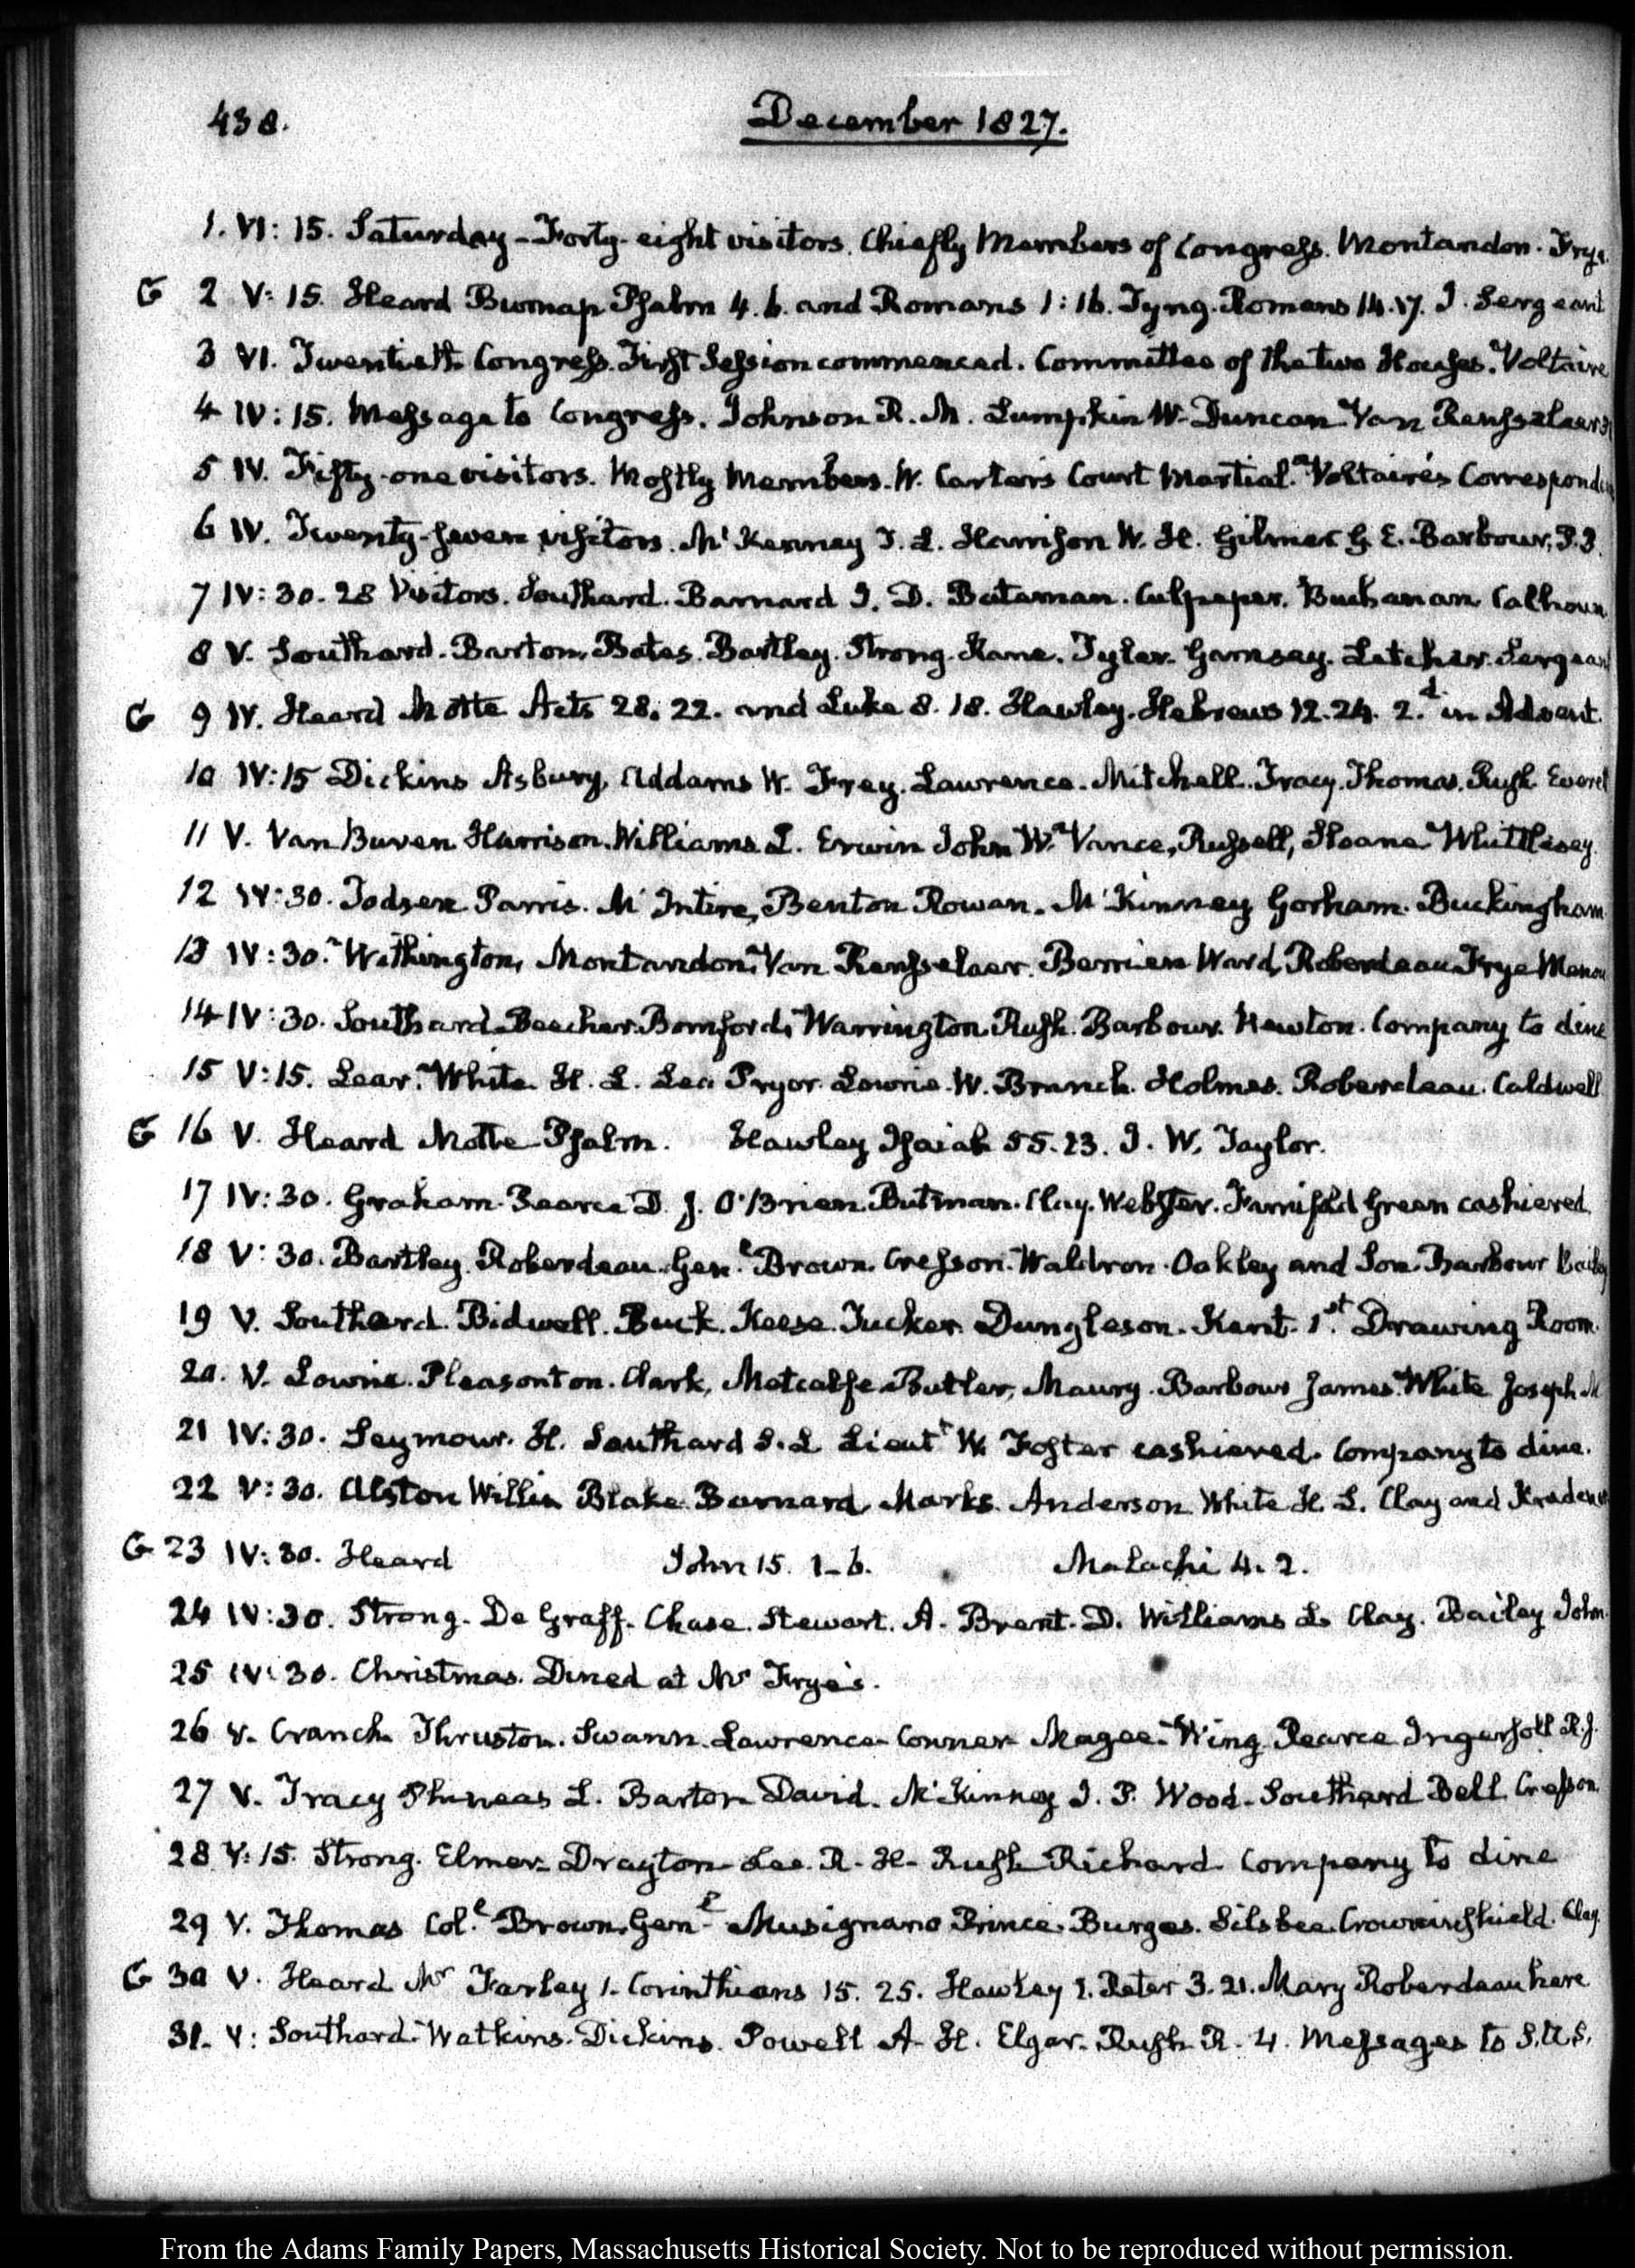 438.
December 1827.
1. VI: 15. Saturday - Forty-eight visitors. Chiefly Members of Congress. Montandon. Frye.
G 2 V: 15. Heard Burnap Psalm 4. 6. and Romans 1: 16. Tyng. Romans 14. 17. J. Sergeant
3 VI. Twentieth Congress. First Session commenced. Committee of the two Houses. Voltaire
4 IV: 15. Message to Congress. Johnson R. M. Lumpkin W. Duncan Van Rensselaer
5 IV. Fifty-one visitors. Mostly Members. W. Carter's Court Martial. Voltaire's Correspond
6 IV. Twenty-seven visitors. McKenney T. L. Harrison W. H. Gilmer G. E. Barbour, P. P.
7 IV: 30. 28 Visitors. Southard. Barnard I. D. Bateman. Culpeper. Buchanan Calhoun
8 V. Southard. Barton. Bates. Bartley. Strong. Kane. Tyler. Garnsey. Letcher. Sergean
G 9 IV. Heard Motte Acts 28. 22. and Luke 8. 18. Hawley. Hebrews 12. 24. 2.d in Advent.
10 IV: 15 Dickins Asbury, Addams W. Frey. Lawrence. Mitchell. Tracy. Thomas. Rush. Everet
11 V. Van Buren. Harrison. Williams L. Erwin John W. Vance, Russell, Sloane Whittlesey.
12 IV: 30. Todsen Parris. McIntire, Benton Rowan. McKinney Gorham. Buckingham
13 IV: 30. Withington, Montandon. Van Rensselaer. Berrien Ward, Roberdeau Frye Menou
14 IV: 30. Southard Beecher. Bomford, Warrington Rush. Barbour. Newton. Company to dine
15 V: 15. Lear. White H. L. Lea Pryor Lowrie W. Branch. Holmes. Roberdeau. Caldwell
G 16 V. Heard Motte Psalm. Hawley Isaiah 55. 13. J. W. Taylor.
17 IV: 30. Graham. Pearce D. J. O'Brien. Butman. Clay. Webster. Farrifold Green cashiered.
18 V: 30. Bartley. Roberdeau. Genl. Brown. Cresson. Waldron. Oakley and Son. Barbour Baile
19 V. Southard. Bidwell. Buck. Keese. Tucker. Dungleson. Kent. 1.st Drawing Room.
20. V. Lowrie. Pleasonton. Clark, Metcalfe. Butler, Maury. Barbour James. White Joseph M
21 IV: 30. Seymour. H. Southard S. L. Lieut. W. Foster cashiered. Company to dine.
22 V: 30. Alston Willis Blake. Barnard Marks. Anderson White H. L. Clay and Kredene
G 23 IV: 30. Heard John 15. 1-6. Malachi 4. 2.
24 IV: 30. Strong. De Graff. Chase. Stewart. A. Brent. D. Williams L. Clay. Bailey John
25 IV: 30. Christmas. Dined at Mr Frye's.
26 V. Cranch. Thruston. Swann. Lawrence Conner Magee. Wing. Pearce Ingersoll R. J.
27 V. Tracy Phineas L. Barton David. McKinney J. P. Wood. Southard Bell. Cresson.
28 V: 15. Strong. Elmer. Drayton Lee. R. H. Rush Richard. Company to dine
29 V. Thomas Col.l Brown. Gen.l Musignano Prince. Burges. Silsbee. Crowninshield. Clay.
G 30 V. Heard Mr Farley 1. Corinthians 15. 25. Hawley 1. Peter 3. 21. Mary Roberdeau here
31. V: Southard. Watkins. Dickins. Powell A. H. Elgar. Rush R. 4. Messages to S.U.S.
From the Adams Family Papers, Massachusetts Historical Society. Not to be reproduced without permission.